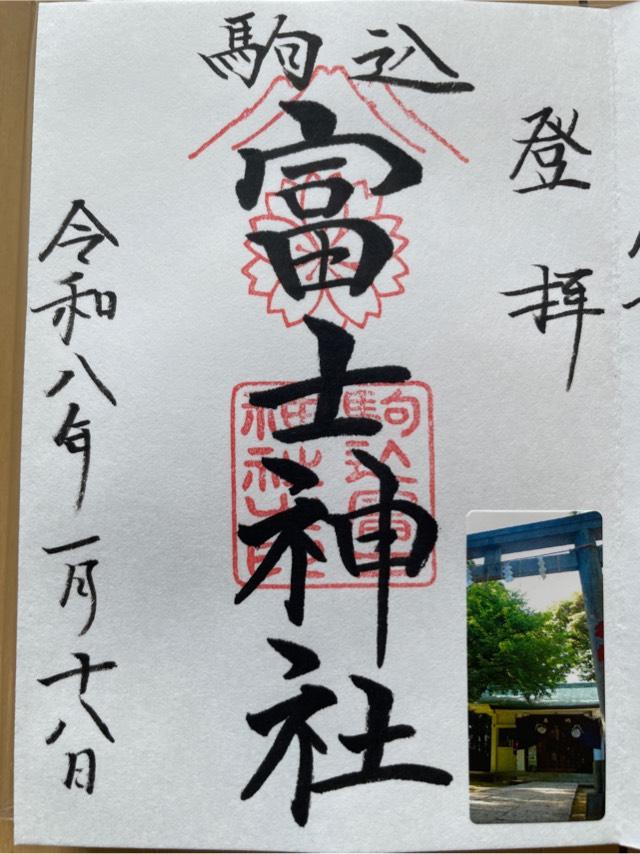 登拝
駒込
富士神社
駒込富
神社
令和八年一月十八日